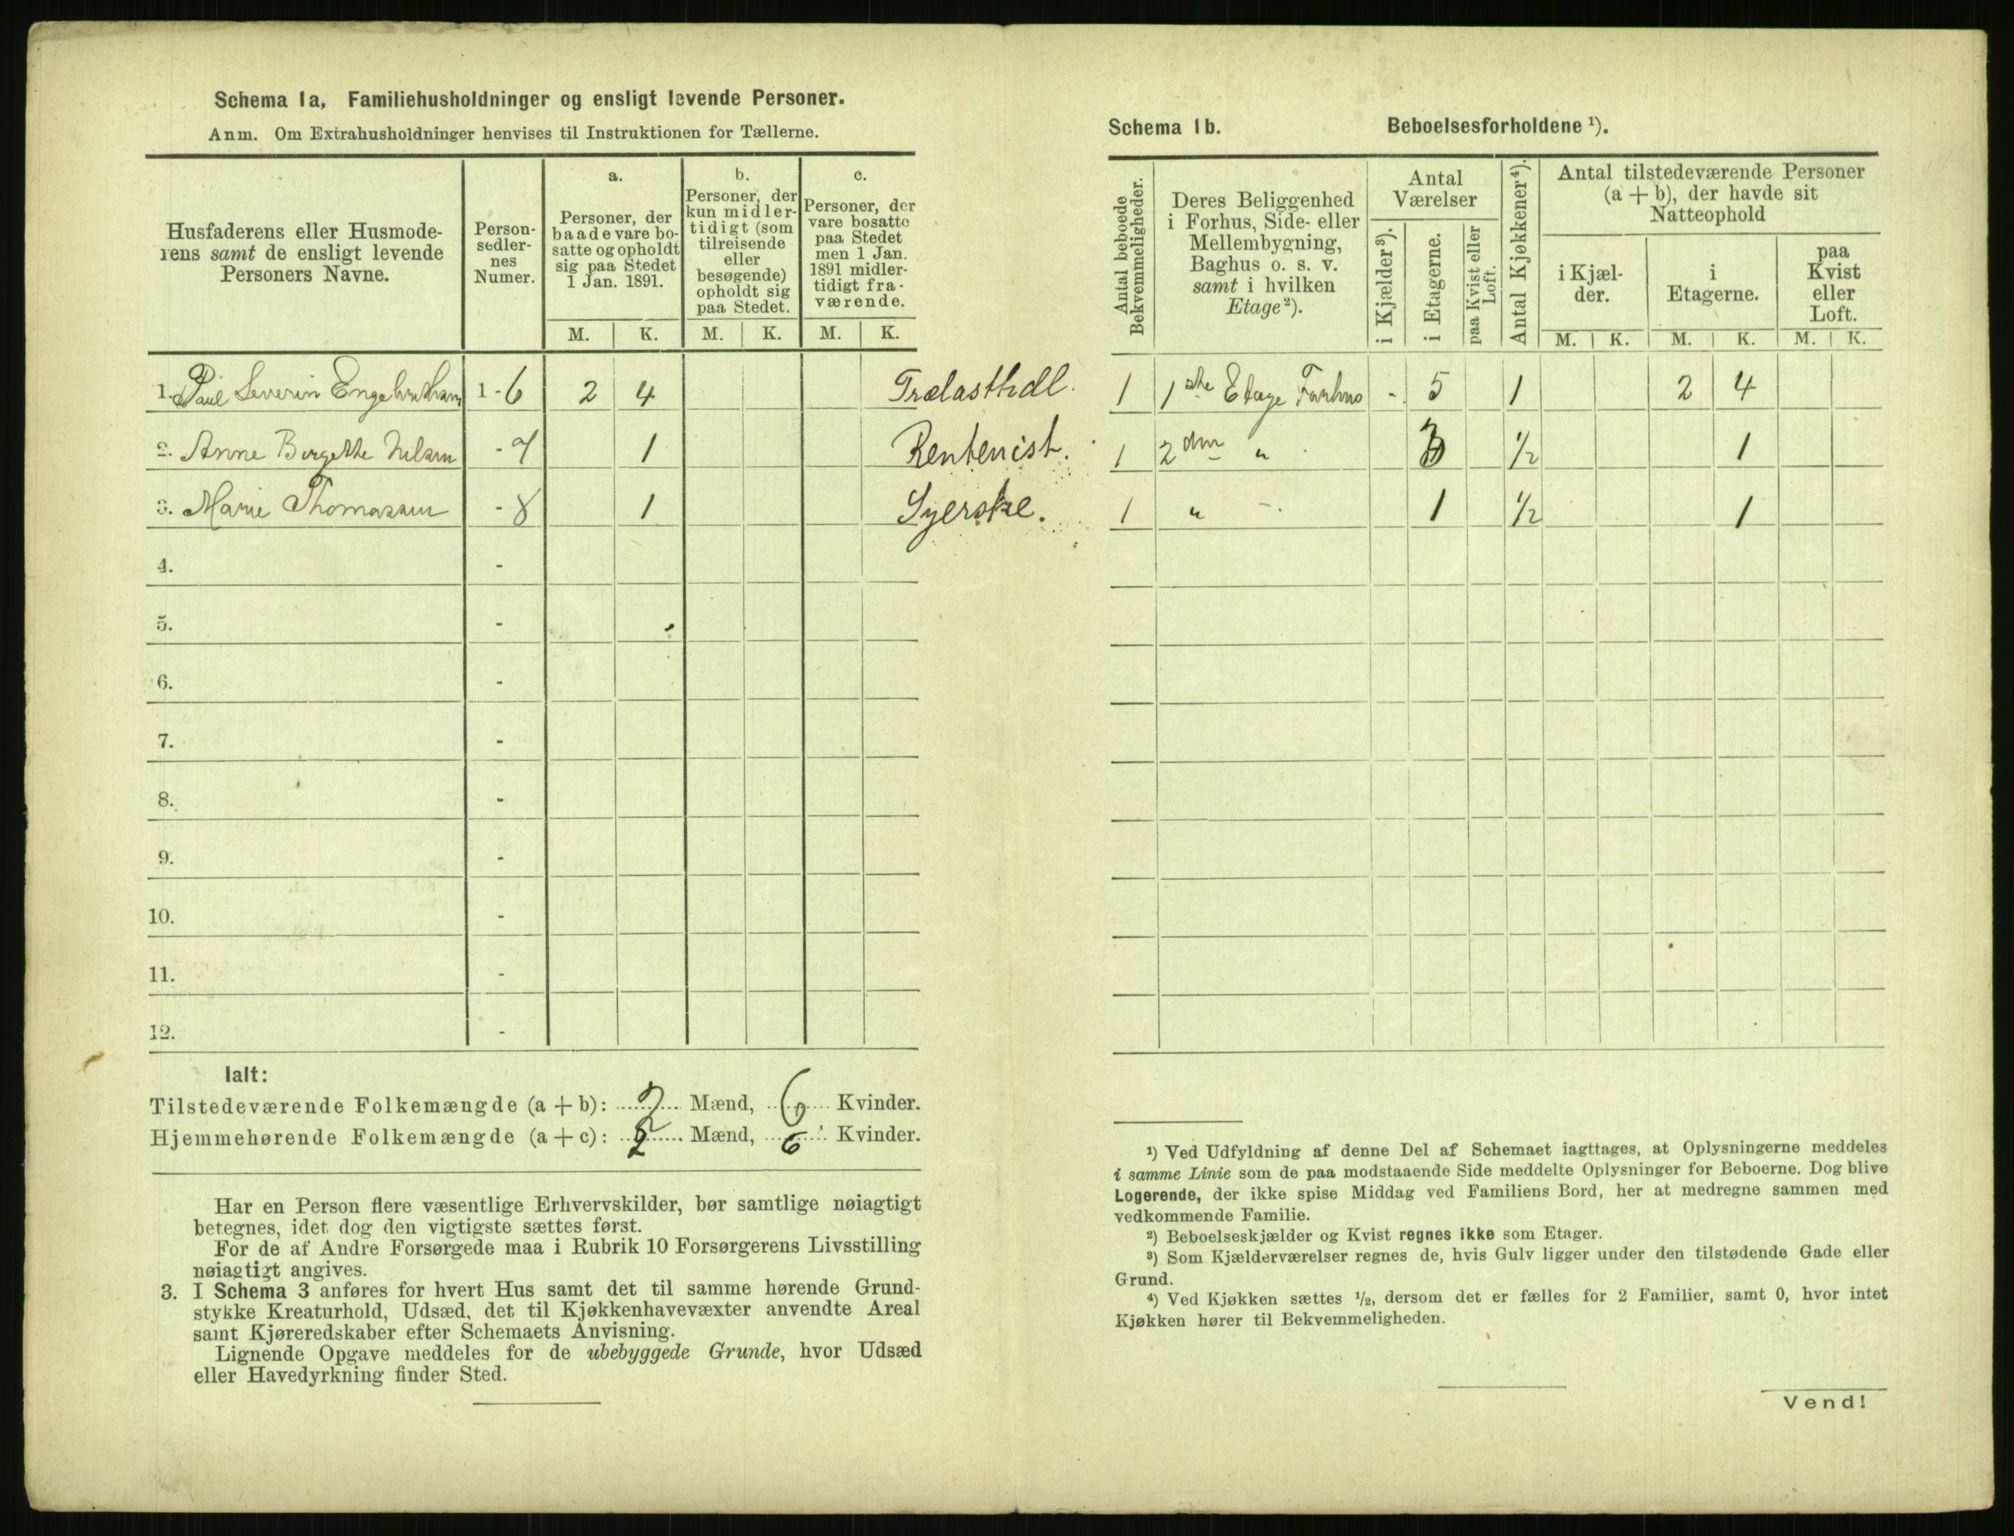 Schema 1a, Familiehusholdninger og ensligt levende Personer.
Anm. Om Extrahusholdninger henvises til Instruktionen for Tællerne.
Husfaderens eller Husmode-
rens samt de ensligt levende
Personers Navne.
Person-
sedler-
nes
Numer.
a.
Personer, der
baade vare bo-
satte og opholdt
sig paa Stedet
1 Jan. 1891.
b.
Personer, der
kun midler-
tidigt (som
tilreisende
eller
besøgende)
opholdt sig
paa Stedet.
c.
Personer, der
vare bosatte
paa Stedet
men 1 Jan.
1891 midler-
tidigt fra-
værende.
M. K. M. K. M. K.
1. Paul Severin Engebrethsen 1 - 6 2 4 Trælasthdl.
2. Anne Birgitte Nilsen - 7 1 Rentenist.
3. Marie Thomassen - 8 1 Syerske.
4. -
5. -
6. -
7. -
8. -
9. -
10. -
11. -
12. -
Ialt:
Tilstedeværende Folkemængde (a + b): 2 Mænd, 6 Kvinder.
Hjemmehørende Folkemængde (a + c): 2 Mænd, 6 Kvinder.
Har en Person flere væsentlige Erhvervskilder, bør samtlige nøiagtigt
betegnes, idet dog den vigtigste sættes først.
For de af Andre Forsørgede maa i Rubrik 10 Forsørgerens Livsstilling
nøiagtigt angives.
3. I Schema 3 anføres for hvert Hus samt det til samme hørende Grund-
stykke Kreaturhold, Udsæd, det til Kjøkkenhavevæxter anvendte Areal
samt Kjøreredskaber efter Schemaets Anvisning.
Lignende Opgave meddeles for de ubebyggede Grunde, hvor Udsæd
eller Havedyrkning finder Sted.
Schema 1b. Beboelsesforholdene ¹).
Antal beboede
Bekvemmeligheder.
Deres Beliggenhed
i Forhus, Side- eller
Mellembygning,
Baghus o. s. v.
samt i hvilken
Etage²).
Antal
Værelser
i Kjælder³).
i Etagerne.
paa Kvist eller
Loft.
Antal Kjøkkener⁴).
Antal tilstedeværende Personer
(a + b), der havde sit
Natteophold
i Kjæl-
der.
i
Etagerne.
paa
Kvist
eller
Loft.
M. K. M. K. M. K.
1 1ste Etage Forhus - 5 1 2 4
1 2den " 3 ½ 1
1 " - 1 ½ 1
¹) Ved Udfyldning af denne Del af Schemaet iagttages, at Oplysningerne meddeles
i samme Linie som de paa modstaaende Side meddelte Oplysninger for Beboerne. Dog blive
Logerende, der ikke spise Middag ved Familiens Bord, her at medregne sammen med
vedkommende Familie.
²) Beboelseskjælder og Kvist regnes ikke som Etager.
³) Som Kjælderværelser regnes de, hvis Gulv ligger under den tilstødende Gade eller
Grund.
⁴) Ved Kjøkken sættes ½, dersom det er fælles for 2 Familier, samt 0, hvor intet
Kjøkken hører til Bekvemmeligheden.
Vend!